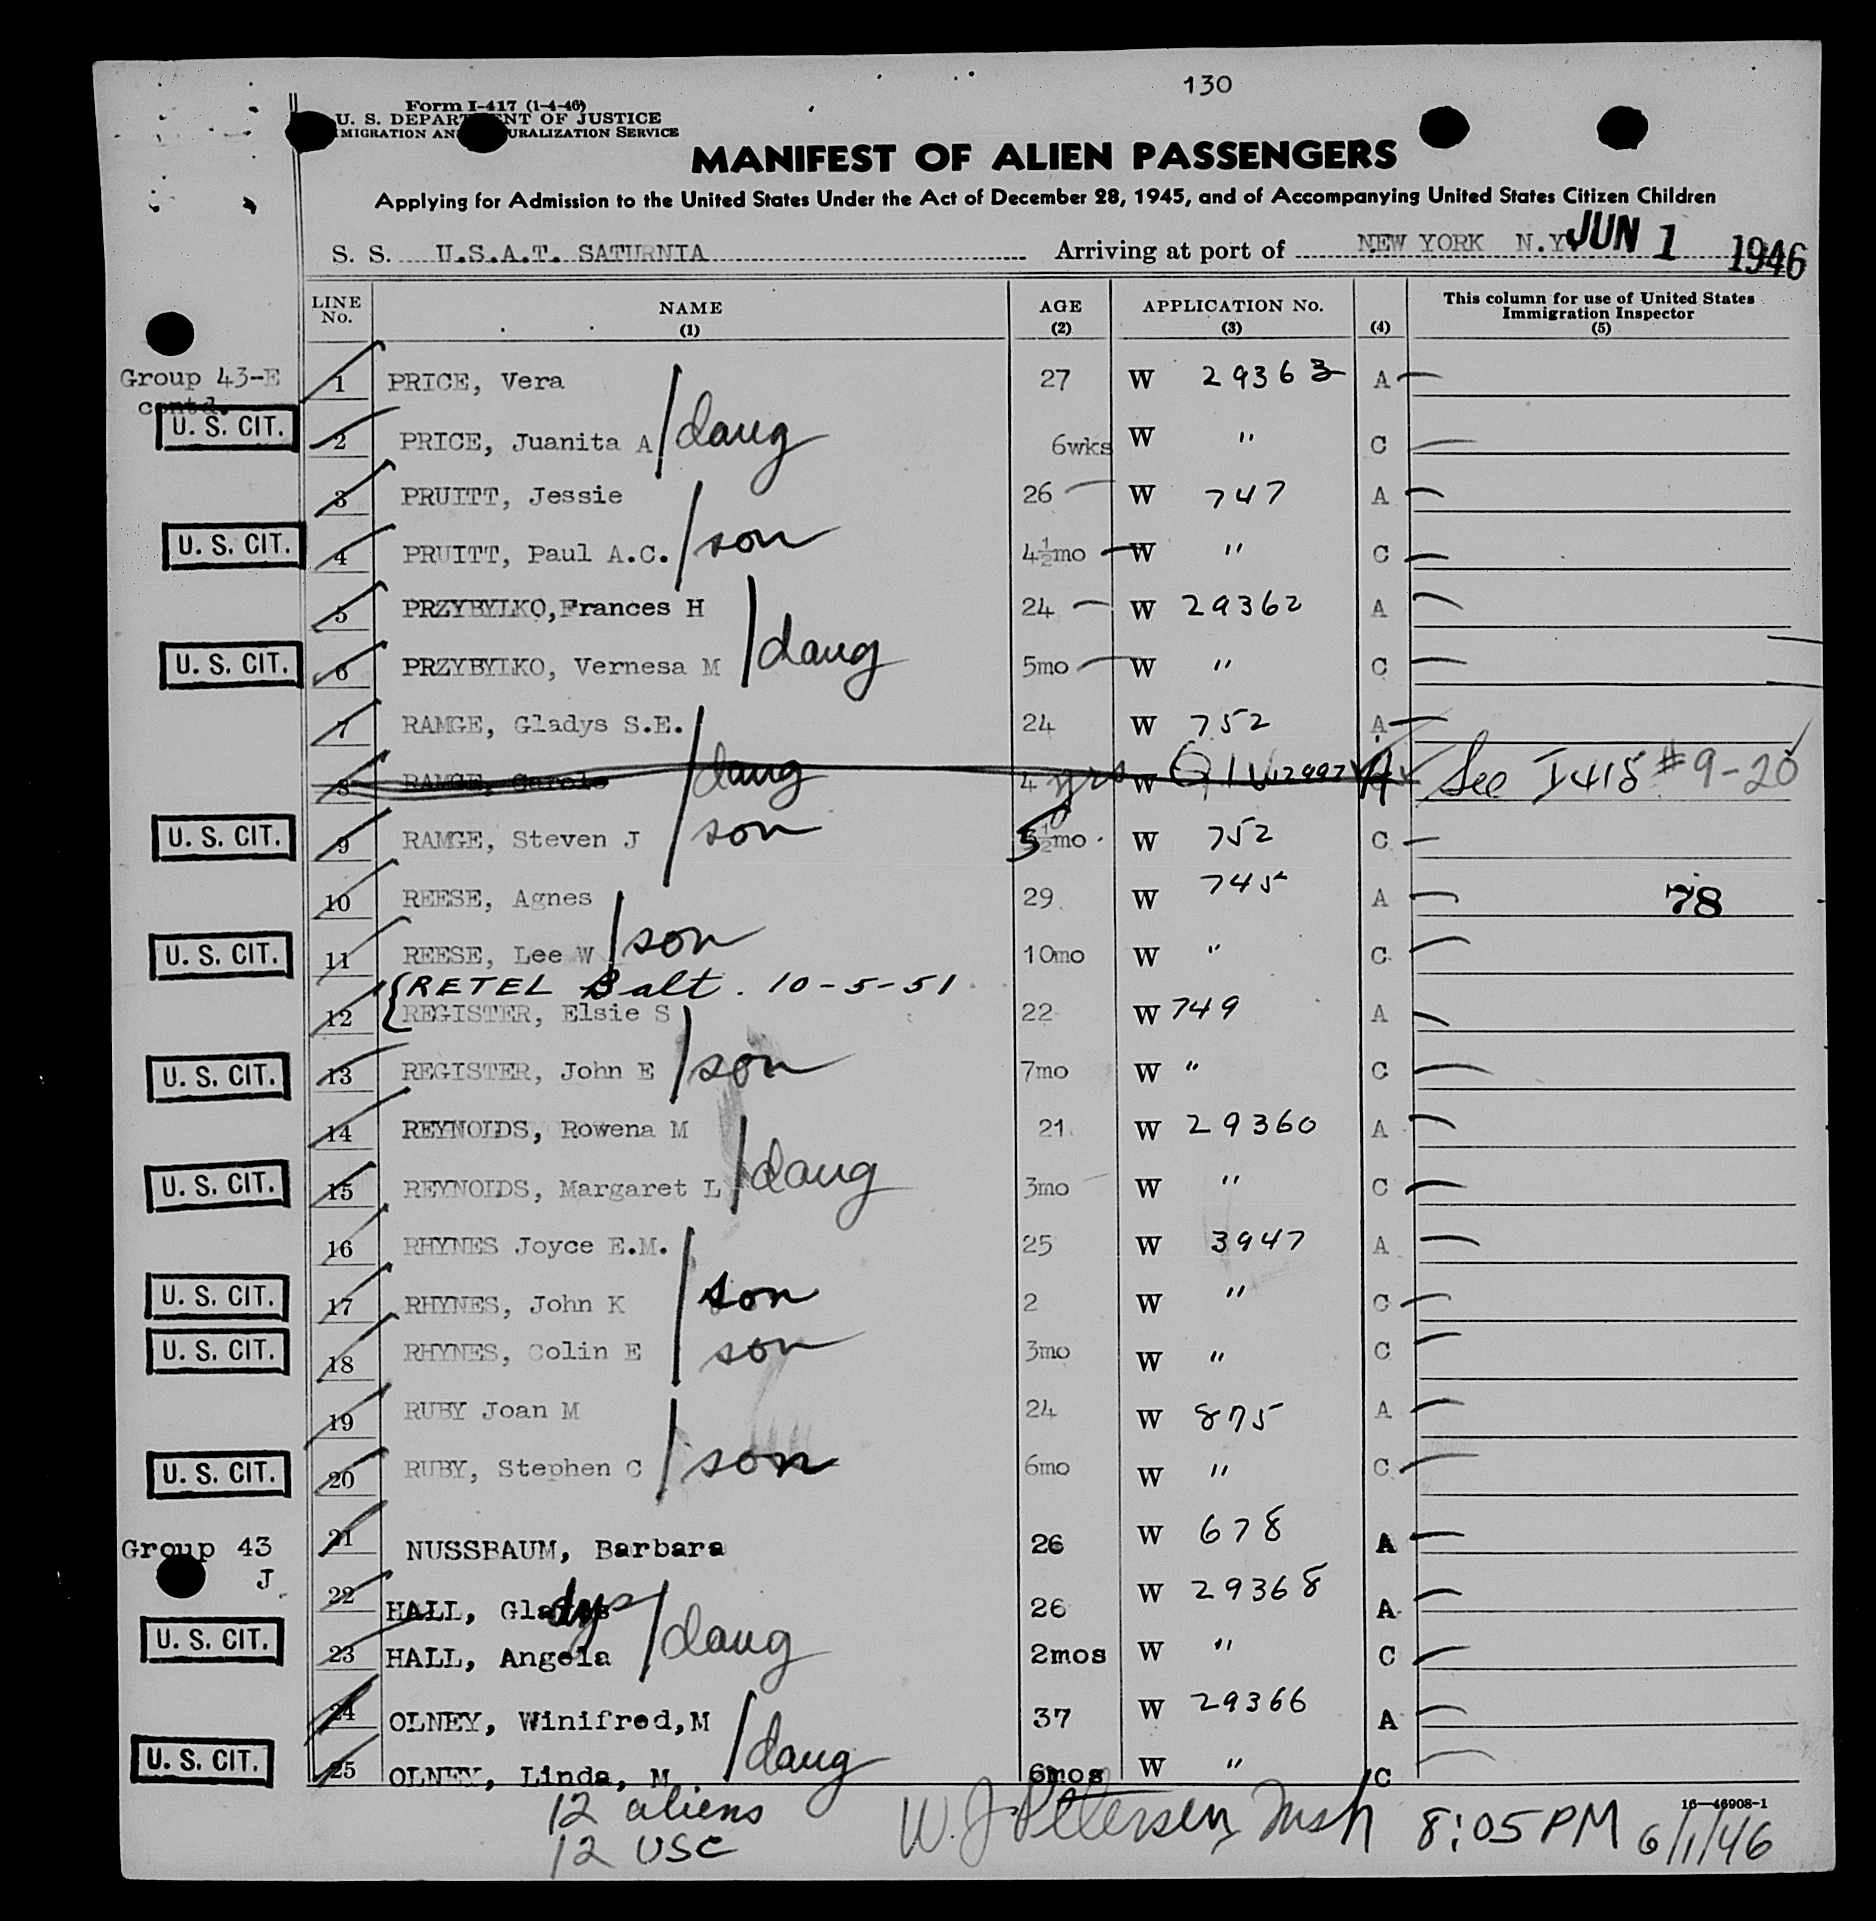 130
Form I-417 (1-4-46)
U. S. DEPARTMENT OF JUSTICE
IMMIGRATION AND NATURALIZATION SERVICE
MANIFEST OF ALIEN PASSENGERS
Applying for Admission to the United States Under the Act of December 28, 1945, and of Accompanying United States Citizen Children
S. S. U.S.A.T. SATURNIA Arriving at port of NEW YORK N.Y. JUN 1 1946
LINE No. NAME (1) AGE (2) APPLICATION No. (3) (4) This column for use of United States Immigration Inspector (5)
Group 43-E 1 PRICE, Vera 27 W 29363 A
contd.
U. S. CIT. 2 PRICE, Juanita A /daug 6wks W " C
3 PRUITT, Jessie 26 W 747 A
U. S. CIT. 4 PRUITT, Paul A.C. /son 4½mo W " C
5 PRZYBYLKO,Frances H 24 W 29362 A
U. S. CIT. 6 PRZYBYLKO, Vernesa M /daug 5mo W " C
7 RAMGE, Gladys S.E. 24 W 752 A
8 RAMGE, Carole /daug 4 yrs W A See I418 #9-20
U. S. CIT. 9 RAMGE, Steven J /son 5½mo W 752 C
10 REESE, Agnes 29 W 745 A 78
U. S. CIT. 11 REESE, Lee W /son 10mo W " C
RETEL Balt. 10-5-51
12 REGISTER, Elsie S 22 W 749 A
U. S. CIT. 13 REGISTER, John E /son 7mo W " C
14 REYNOLDS, Rowena M 21 W 29360 A
U. S. CIT. 15 REYNOLDS, Margaret L /daug 3mo W " C
16 RHYNES Joyce E.M. 25 W 3947 A
U. S. CIT. 17 RHYNES, John K /son 2 W " C
U. S. CIT. 18 RHYNES, Colin E son 3mo W " C
19 RUBY Joan M 24 W 875 A
U. S. CIT. 20 RUBY, Stephen C /son 6mo W " C
Group 43 21 NUSSBAUM, Barbara 26 W 678 A
J
22 HALL, Gladys 26 W 29368 A
U. S. CIT. 23 HALL, Angela /daug 2mos W " C
24 OLNEY, Winifred,M 37 W 29366 A
U. S. CIT. 25 OLNEY, Linda, M. /daug 6mos W " C
16—46908-1
12 aliens W. J. Petersen, Insp 8:05 PM 6/1/46
12 USC